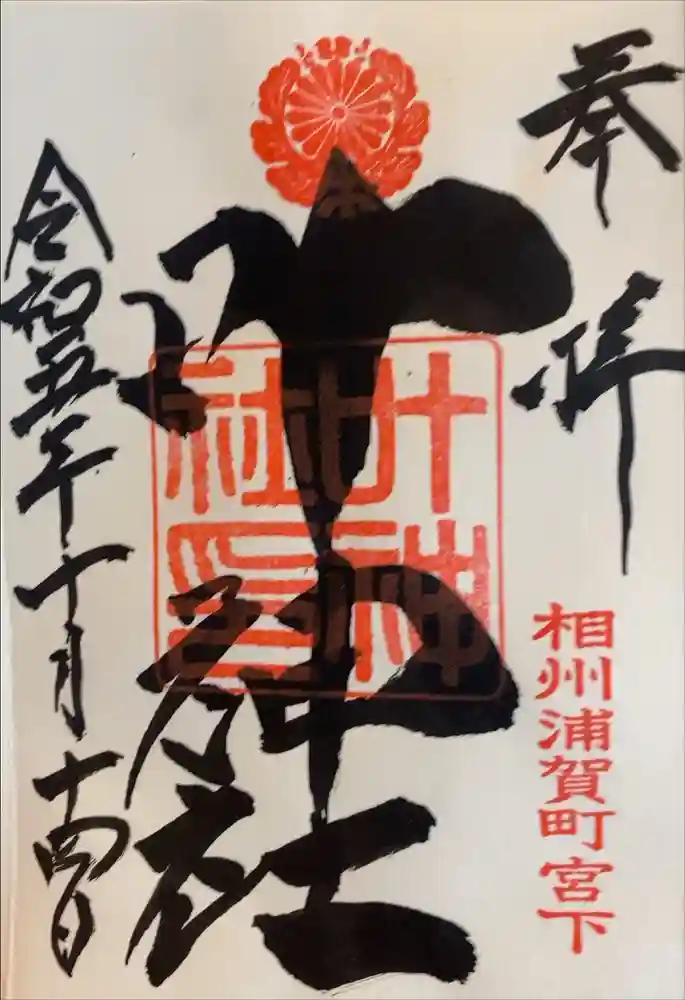 奉拝
相州浦賀町宮下
叶神社
叶神
社印
令和五年十月十四日